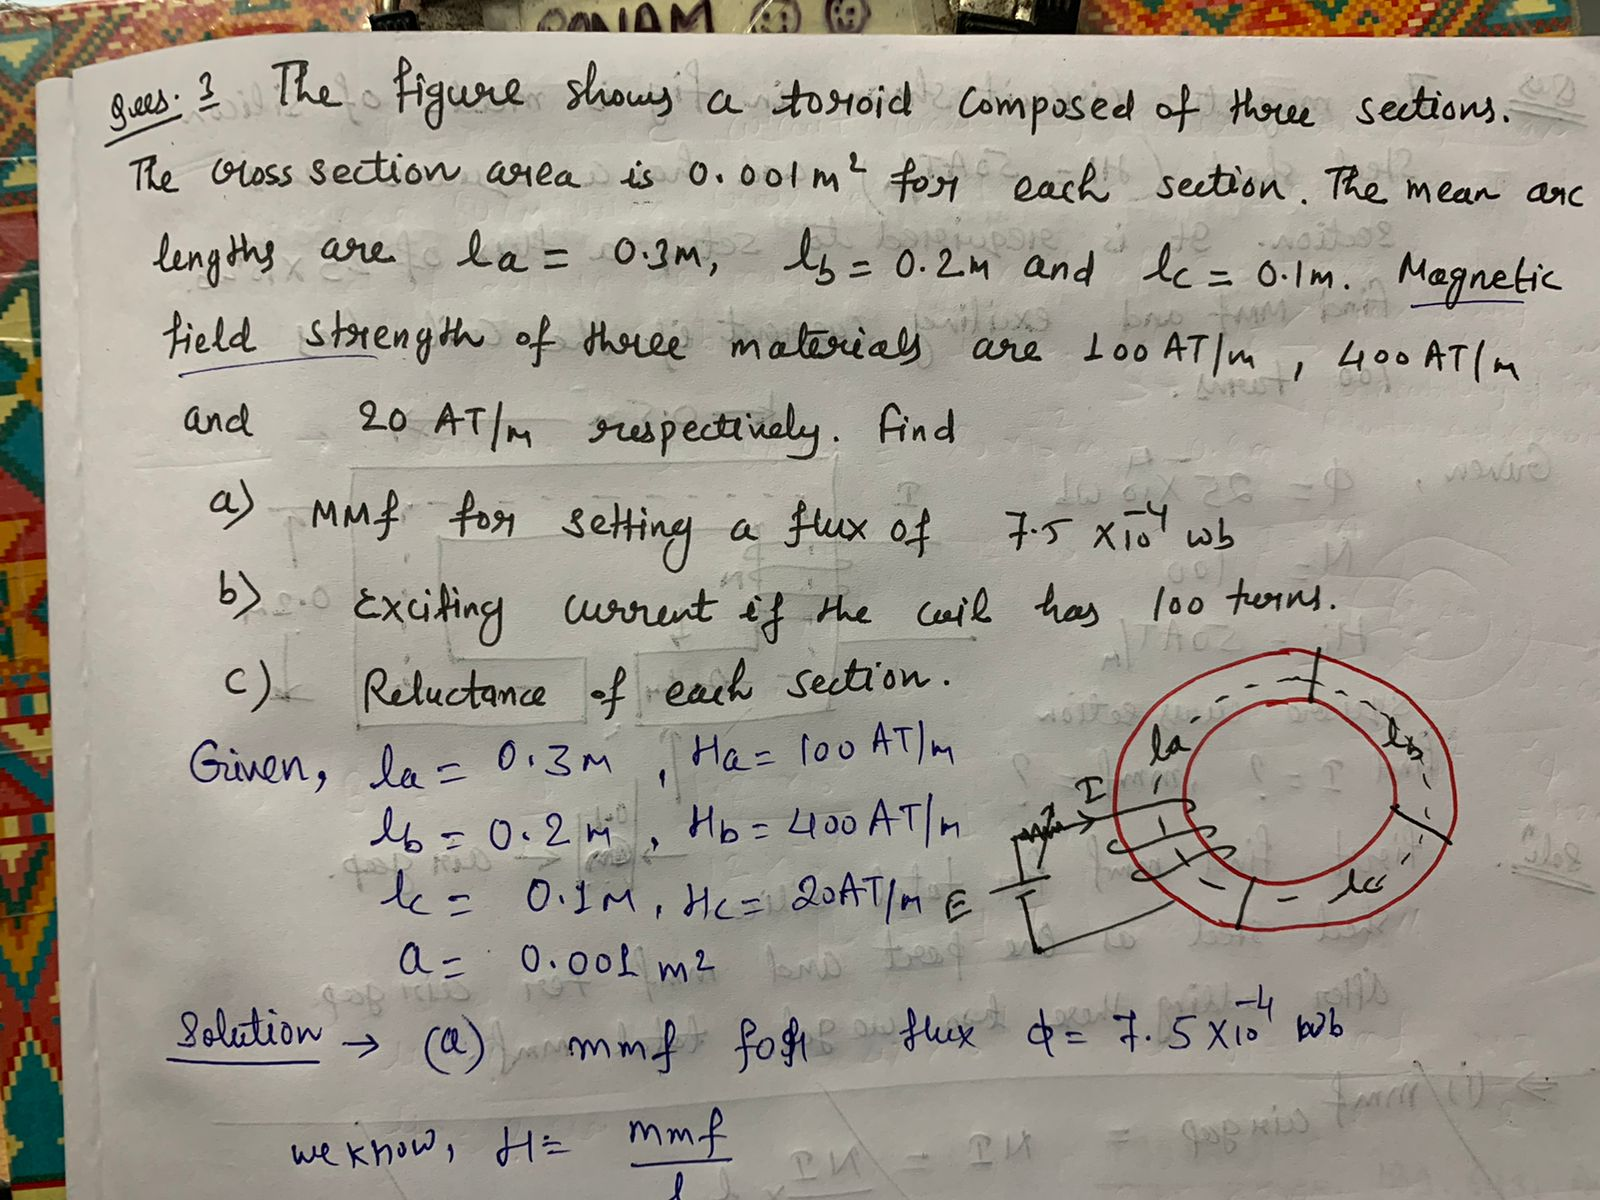 SONAM
Ques. 3 The figure shows a toroid composed of three sections.
The cross section area is 0.001m² for each section. The mean arc
lengths are la = 0.3m, lb = 0.2m and lc = 0.1m. Magnetic
field strength of three materials are 100 AT/m, 400 AT/m
and 20 AT/m respectively. find
a) MMf for setting a flux of 7.5 ×10⁻⁴ wb
b) Exciting current if the coil has 100 turns.
c) Reluctance of each section.
Given, la = 0.3m, Ha = 100 AT/m
lb = 0.2m, Hb = 400 AT/m
lc = 0.1m, Hc = 20AT/m
a = 0.001 m²
la
lb
lc
I
E
Solution → (a) mmf for flux ϕ = 7.5 ×10⁻⁴ wb
we know, H = mmf
l